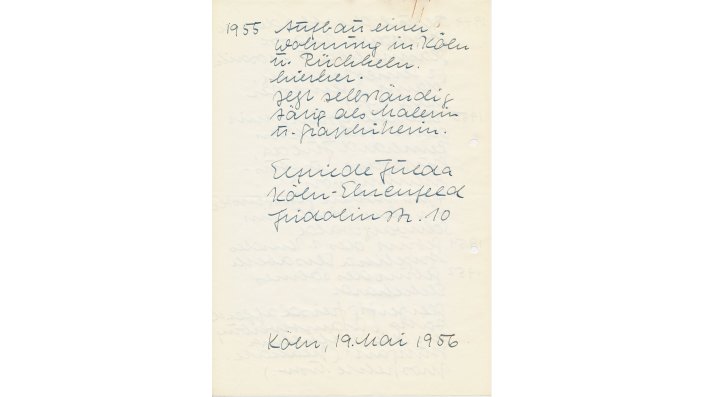 1955 Aufbau einer
Wohnung in Köln
u. Rückkehr
hierher.
Jetzt selbständig
tätig als Malerin
u. Graphikerin.
Elfriede Fulda
Köln-Ehrenfeld
Fridolinstr. 10
Köln, 19. Mai 1956